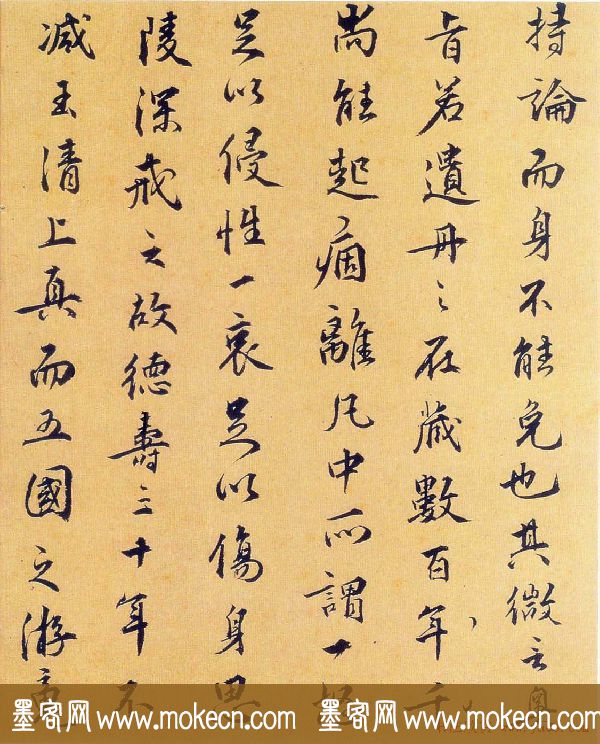 持論而身不能免也其微言奧
旨若遺丹之在藏數百年
尚能起痼離凡中所謂一起
足以侵性一哀足以傷身思
陵深戒之故德壽三十年不
減玉清上真而五國之游竟
墨客网 www.mokecn.com 墨客网 www.mokecn.com